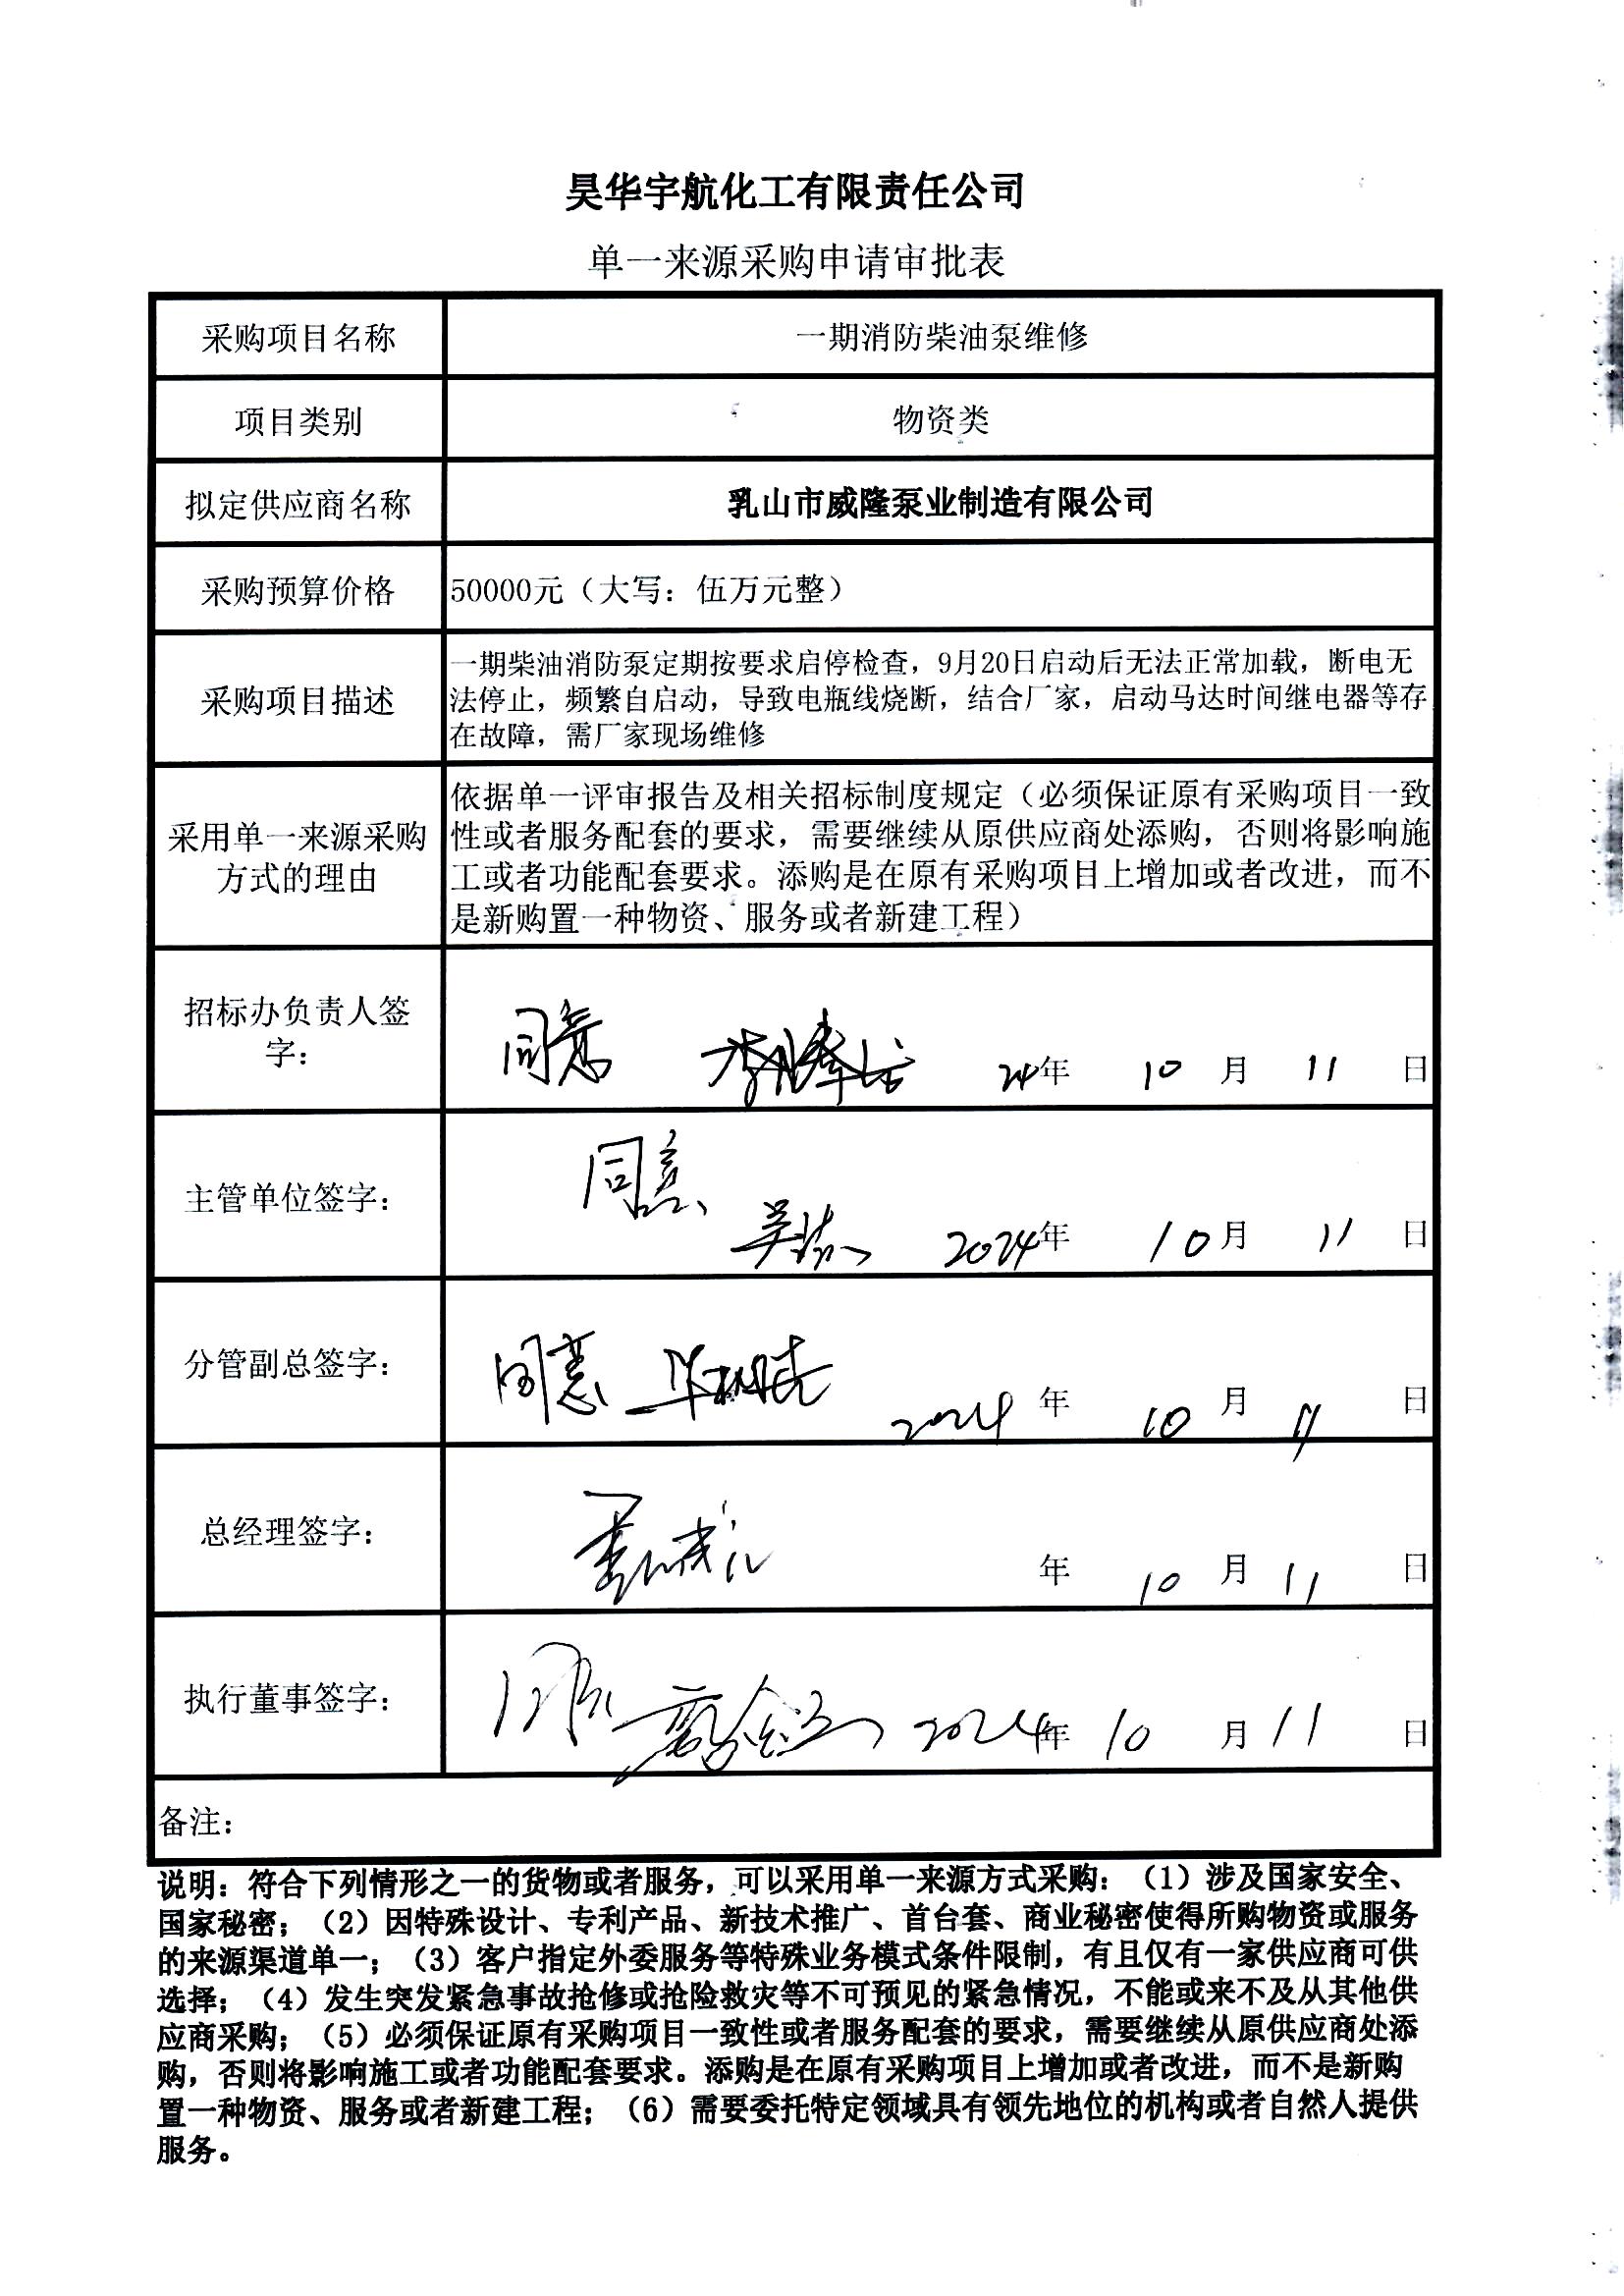 昊华宇航化工有限责任公司
单一来源采购申请审批表
采购项目名称
一期消防柴油泵维修
项目类别
物资类
拟定供应商名称
乳山市威隆泵业制造有限公司
采购预算价格
50000元（大写：伍万元整）
采购项目描述
一期柴油消防泵定期按要求启停检查，9月20日启动后无法正常加载，断电无
法停止，频繁自启动，导致电瓶线烧断，结合厂家，启动马达时间继电器等存
在故障，需厂家现场维修
采用单一来源采购
方式的理由
依据单一评审报告及相关招标制度规定（必须保证原有采购项目一致
性或者服务配套的要求，需要继续从原供应商处添购，否则将影响施
工或者功能配套要求。添购是在原有采购项目上增加或者改进，而不
是新购置一种物资、服务或者新建工程）
招标办负责人签
字：
同意 24年 10 月 11 日
主管单位签字：
同意
2024年 10月 11 日
分管副总签字：
同意 2024 年 10 月 11 日
总经理签字：
年 10 月 11 日
执行董事签字：
2024年 10 月 11 日
备注：
说明：符合下列情形之一的货物或者服务，可以采用单一来源方式采购：（1）涉及国家安全、
国家秘密；（2）因特殊设计、专利产品、新技术推广、首台套、商业秘密使得所购物资或服务
的来源渠道单一；（3）客户指定外委服务等特殊业务模式条件限制，有且仅有一家供应商可供
选择；（4）发生突发紧急事故抢修或抢险救灾等不可预见的紧急情况，不能或来不及从其他供
应商采购；（5）必须保证原有采购项目一致性或者服务配套的要求，需要继续从原供应商处添
购，否则将影响施工或者功能配套要求。添购是在原有采购项目上增加或者改进，而不是新购
置一种物资、服务或者新建工程；（6）需要委托特定领域具有领先地位的机构或者自然人提供
服务。